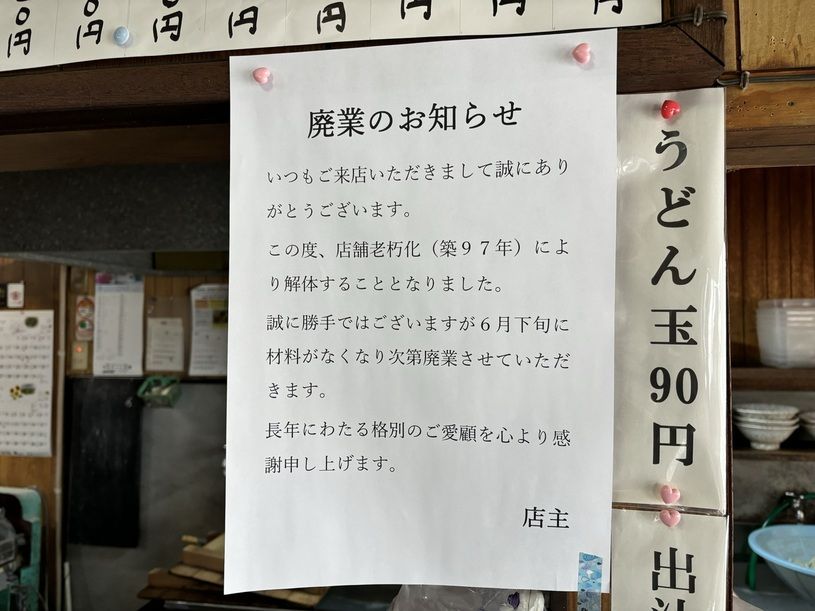 円 円 円 円 円 円 円 円
廃業のお知らせ
いつもご来店いただきまして誠にあり
がとうございます。
この度、店舗老朽化（築９７年）によ
り解体することとなりました。
誠に勝手ではございますが６月下旬に
材料がなくなり次第廃業させていただ
きます。
長年にわたる格別のご愛顧を心より感
謝申し上げます。
店主
うどん玉90円
出